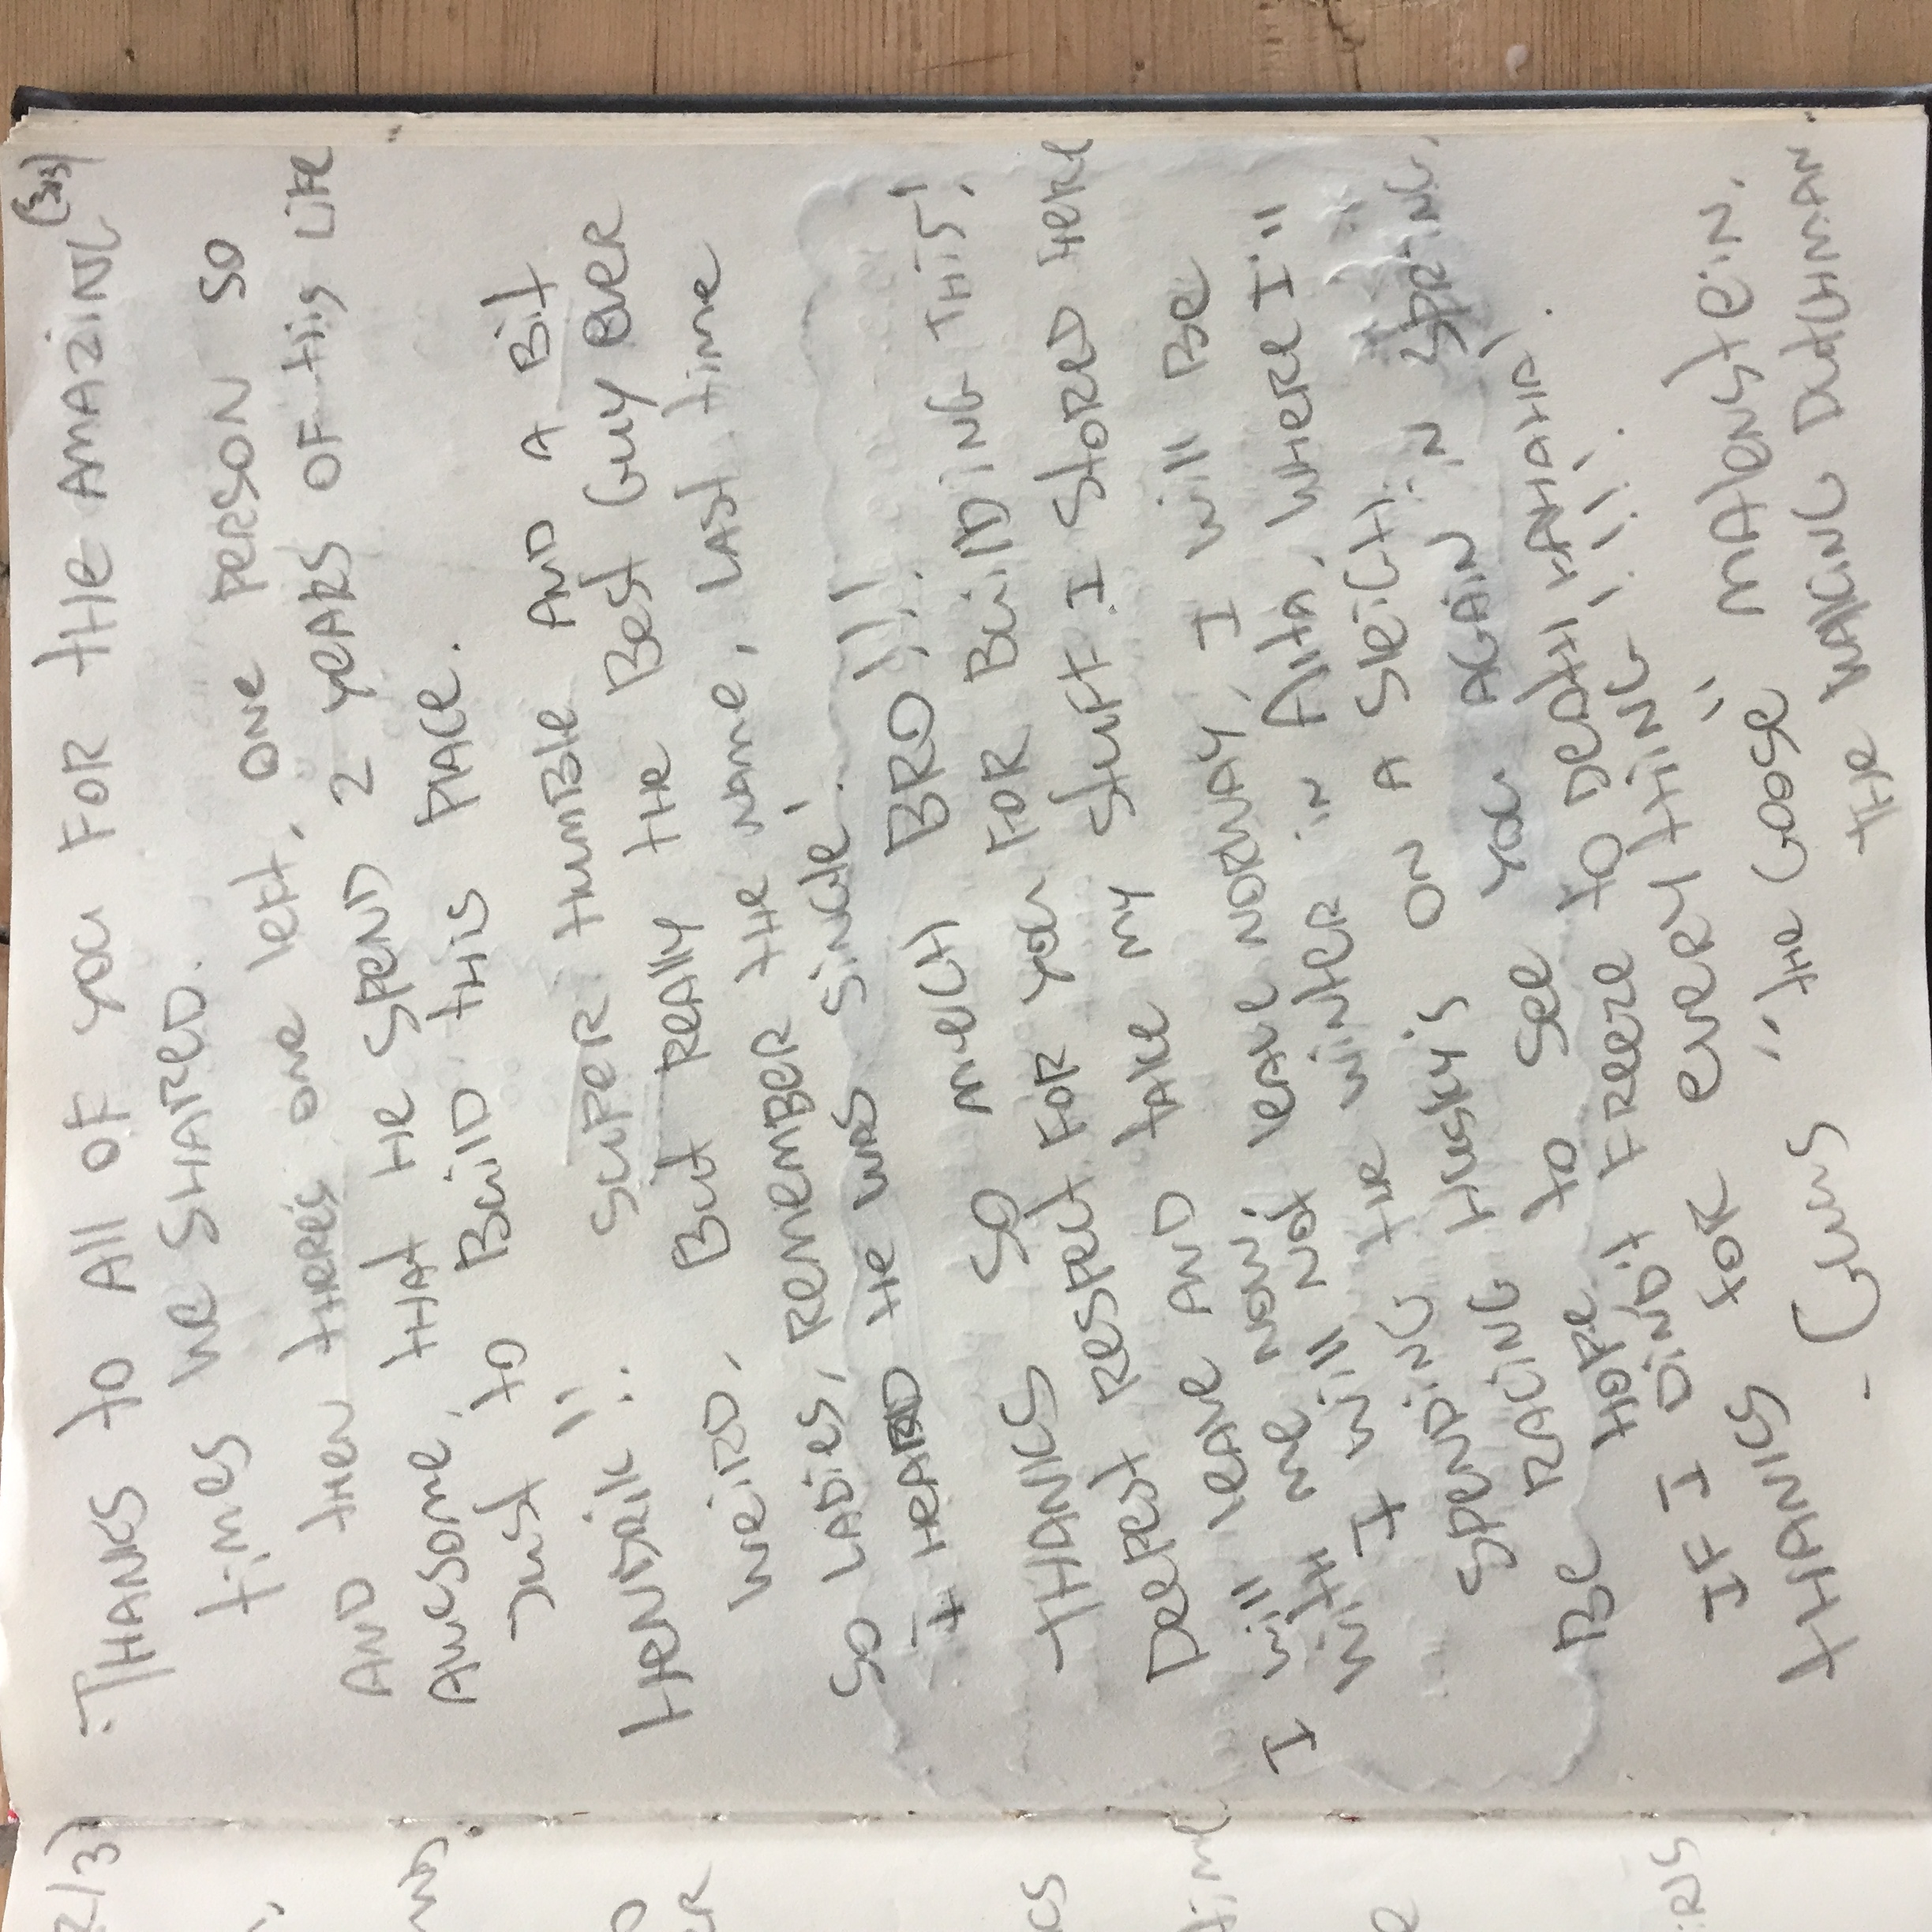 (3/3)
THANKS to All of you FOR the AMAZING
times we SHARED.
AND then there's one left, one person so
Awesome, that He SPEND 2 years OF His LiFe
Just to Build this Place.
Hendrik!! SUPER Humble AND A Bit
weird, But Really the Best Guy ever
So Ladies, Remember the name, Last time
I HEARD He was single!
THANKS so much BRO!!!
Deepest Respect FOR you FOR BuilDing THIS!
I will leave AND take my stuff I stored Here
with me now. Not leave Norway, I will Be
I will the winter in Alta, where I'll
spending on A sleigh in
Racing Husky's
Be to see you AGAIN in spring,
Hope
IF I Didn't Freeze to Death HAHAHA).
THANKS for everything!!!!
- Guus "the Goose" Malenstein.
the walking Dutchman
2/3)